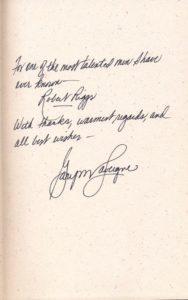 For one of the most talented men I have
ever known —
Robert Riggs
With thanks, warmest regards, and
all best wishes —